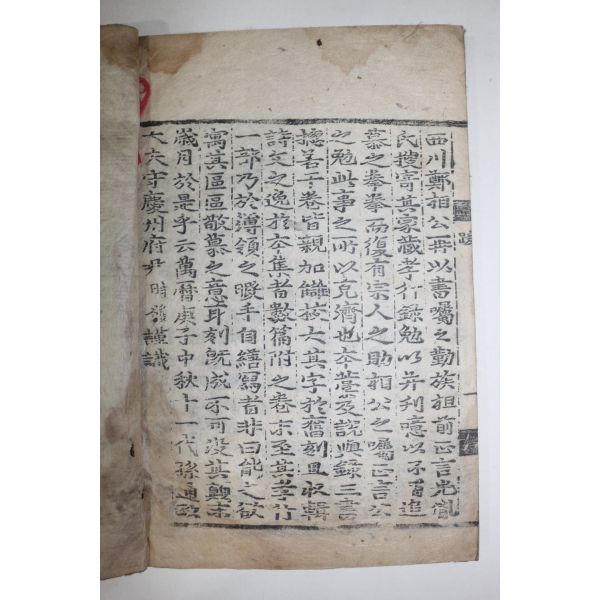 跋 一
西川鄭相公再以書囑之勤族祖前正言光胤
氏搜寄其家藏孝行錄勉以幷刊噫以不肖追
慕之拳拳而復有宗人之助相公之囑正言公
之勉此事之所以克濟也本藁及說與錄三書
摠若干卷皆親加讎挍大其字於舊刻且収輯
詩文之逸於本集者數篇附之卷末至其孝行
一部乃於簿領之暇手自繕寫者非曰能之欲
寓其區區敬慕之意耳刻旣成不可沒其顚末
歲月於是乎云萬曆庚子中秋十一代孫通政
大夫守慶州府尹 時發謹識